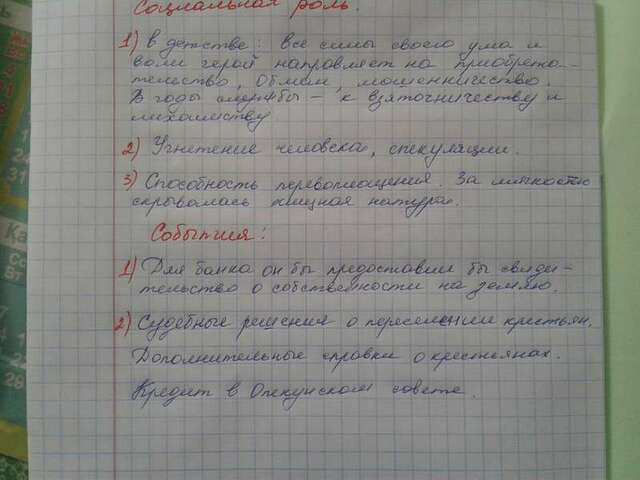 Социальная роль.
1) В детстве: все силы своего ума и
воли герой направляет на приобрета-
тельство, обман, мошенничество.
В годы службы – к взяточничеству и
лихоимству
2) Угнетение человека, спекуляции.
3) Способность перевоплощения. За мягкостью
скрывалась хищная натура.
События:
1) Для банка он бы предоставил бы свиде-
тельство о собственности на землю.
2) Судебные решения о переселении крестьян.
Дополнительные справки о крестьянах.
Кредит в Опекунском совете.
24
31
Ка
Вт
28